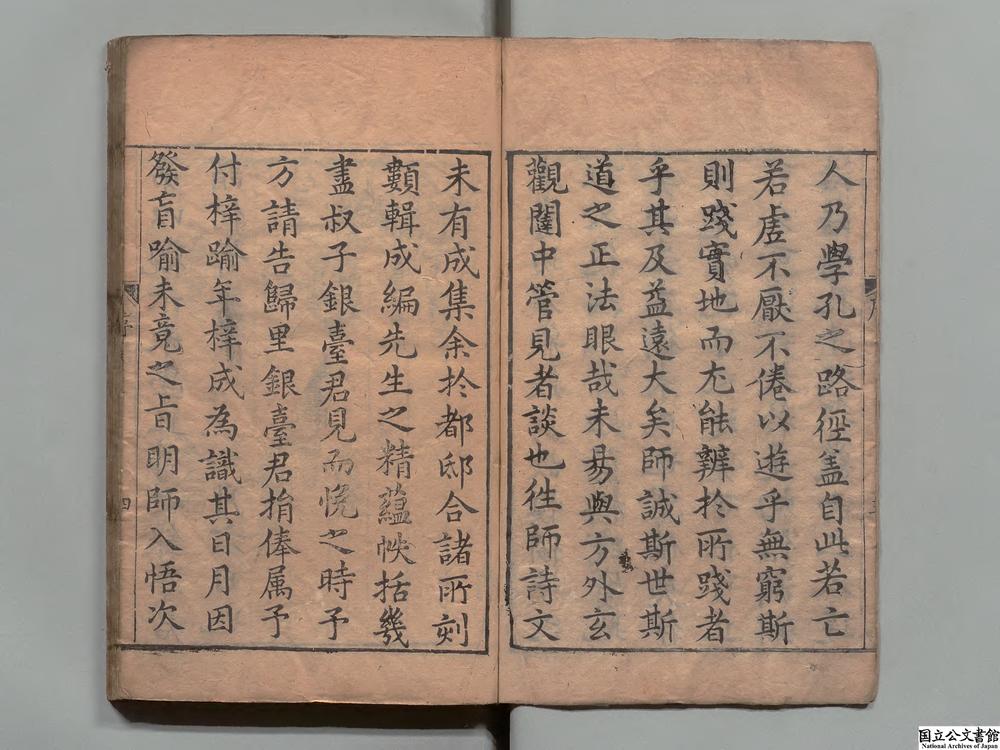 人乃學孔之路徑盖自此若亡
若虛不厭不倦以遊乎無窮斯
則踐實地而尤能辨於所踐者
乎其及益遠大矣師誠斯世斯
道之正法眼哉未易與方外玄
觀闥中管見者談也往師詩文
未有成集余於都邸合諸所刻
類輯成編先生之精蘊帙括幾
盡叔子銀臺君見而悅之時予
方請告歸里銀臺君捐俸属予
付梓踰年梓成為識其日月因
發盲喻未竟之旨明師入悟次
序
四
国立公文書館
National Archives of Japan